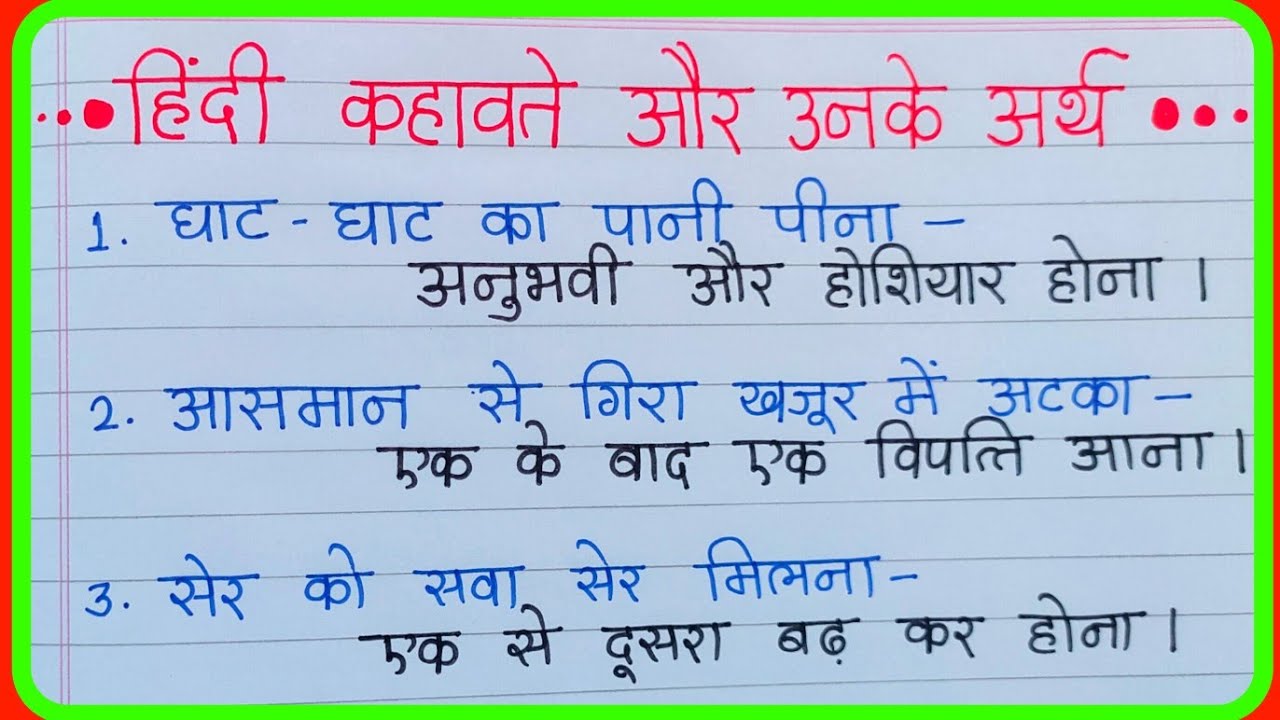 हिंदी कहावते और उनके अर्थ
1. घाट - घाट का पानी पीना -
अनुभवी और होशियार होना ।
2. आसमान से गिरा खजूर में अटका -
एक के बाद एक विपत्ति आना ।
3. सेर को सवा सेर मिलना -
एक से दूसरा बढ़ कर होना ।